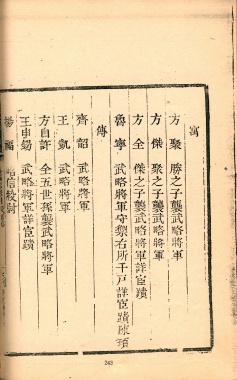 寓
方聚 勝之子襲武略將軍
方傑 聚之子襲武略將軍
方全 傑之子襲武略將軍詳宦蹟
魯寧 武略將軍守禦右所千戶詳宦蹟陳
傳
齊韶 武略將軍
王凱 武略將軍
方自許 全五世孫襲武略將軍
王申錫 武略將軍詳宦蹟
楊 昭信校尉
243